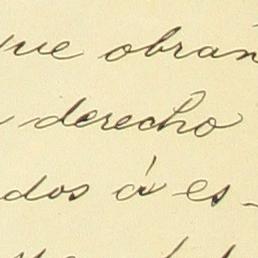 que obran
derecho
dos á es-